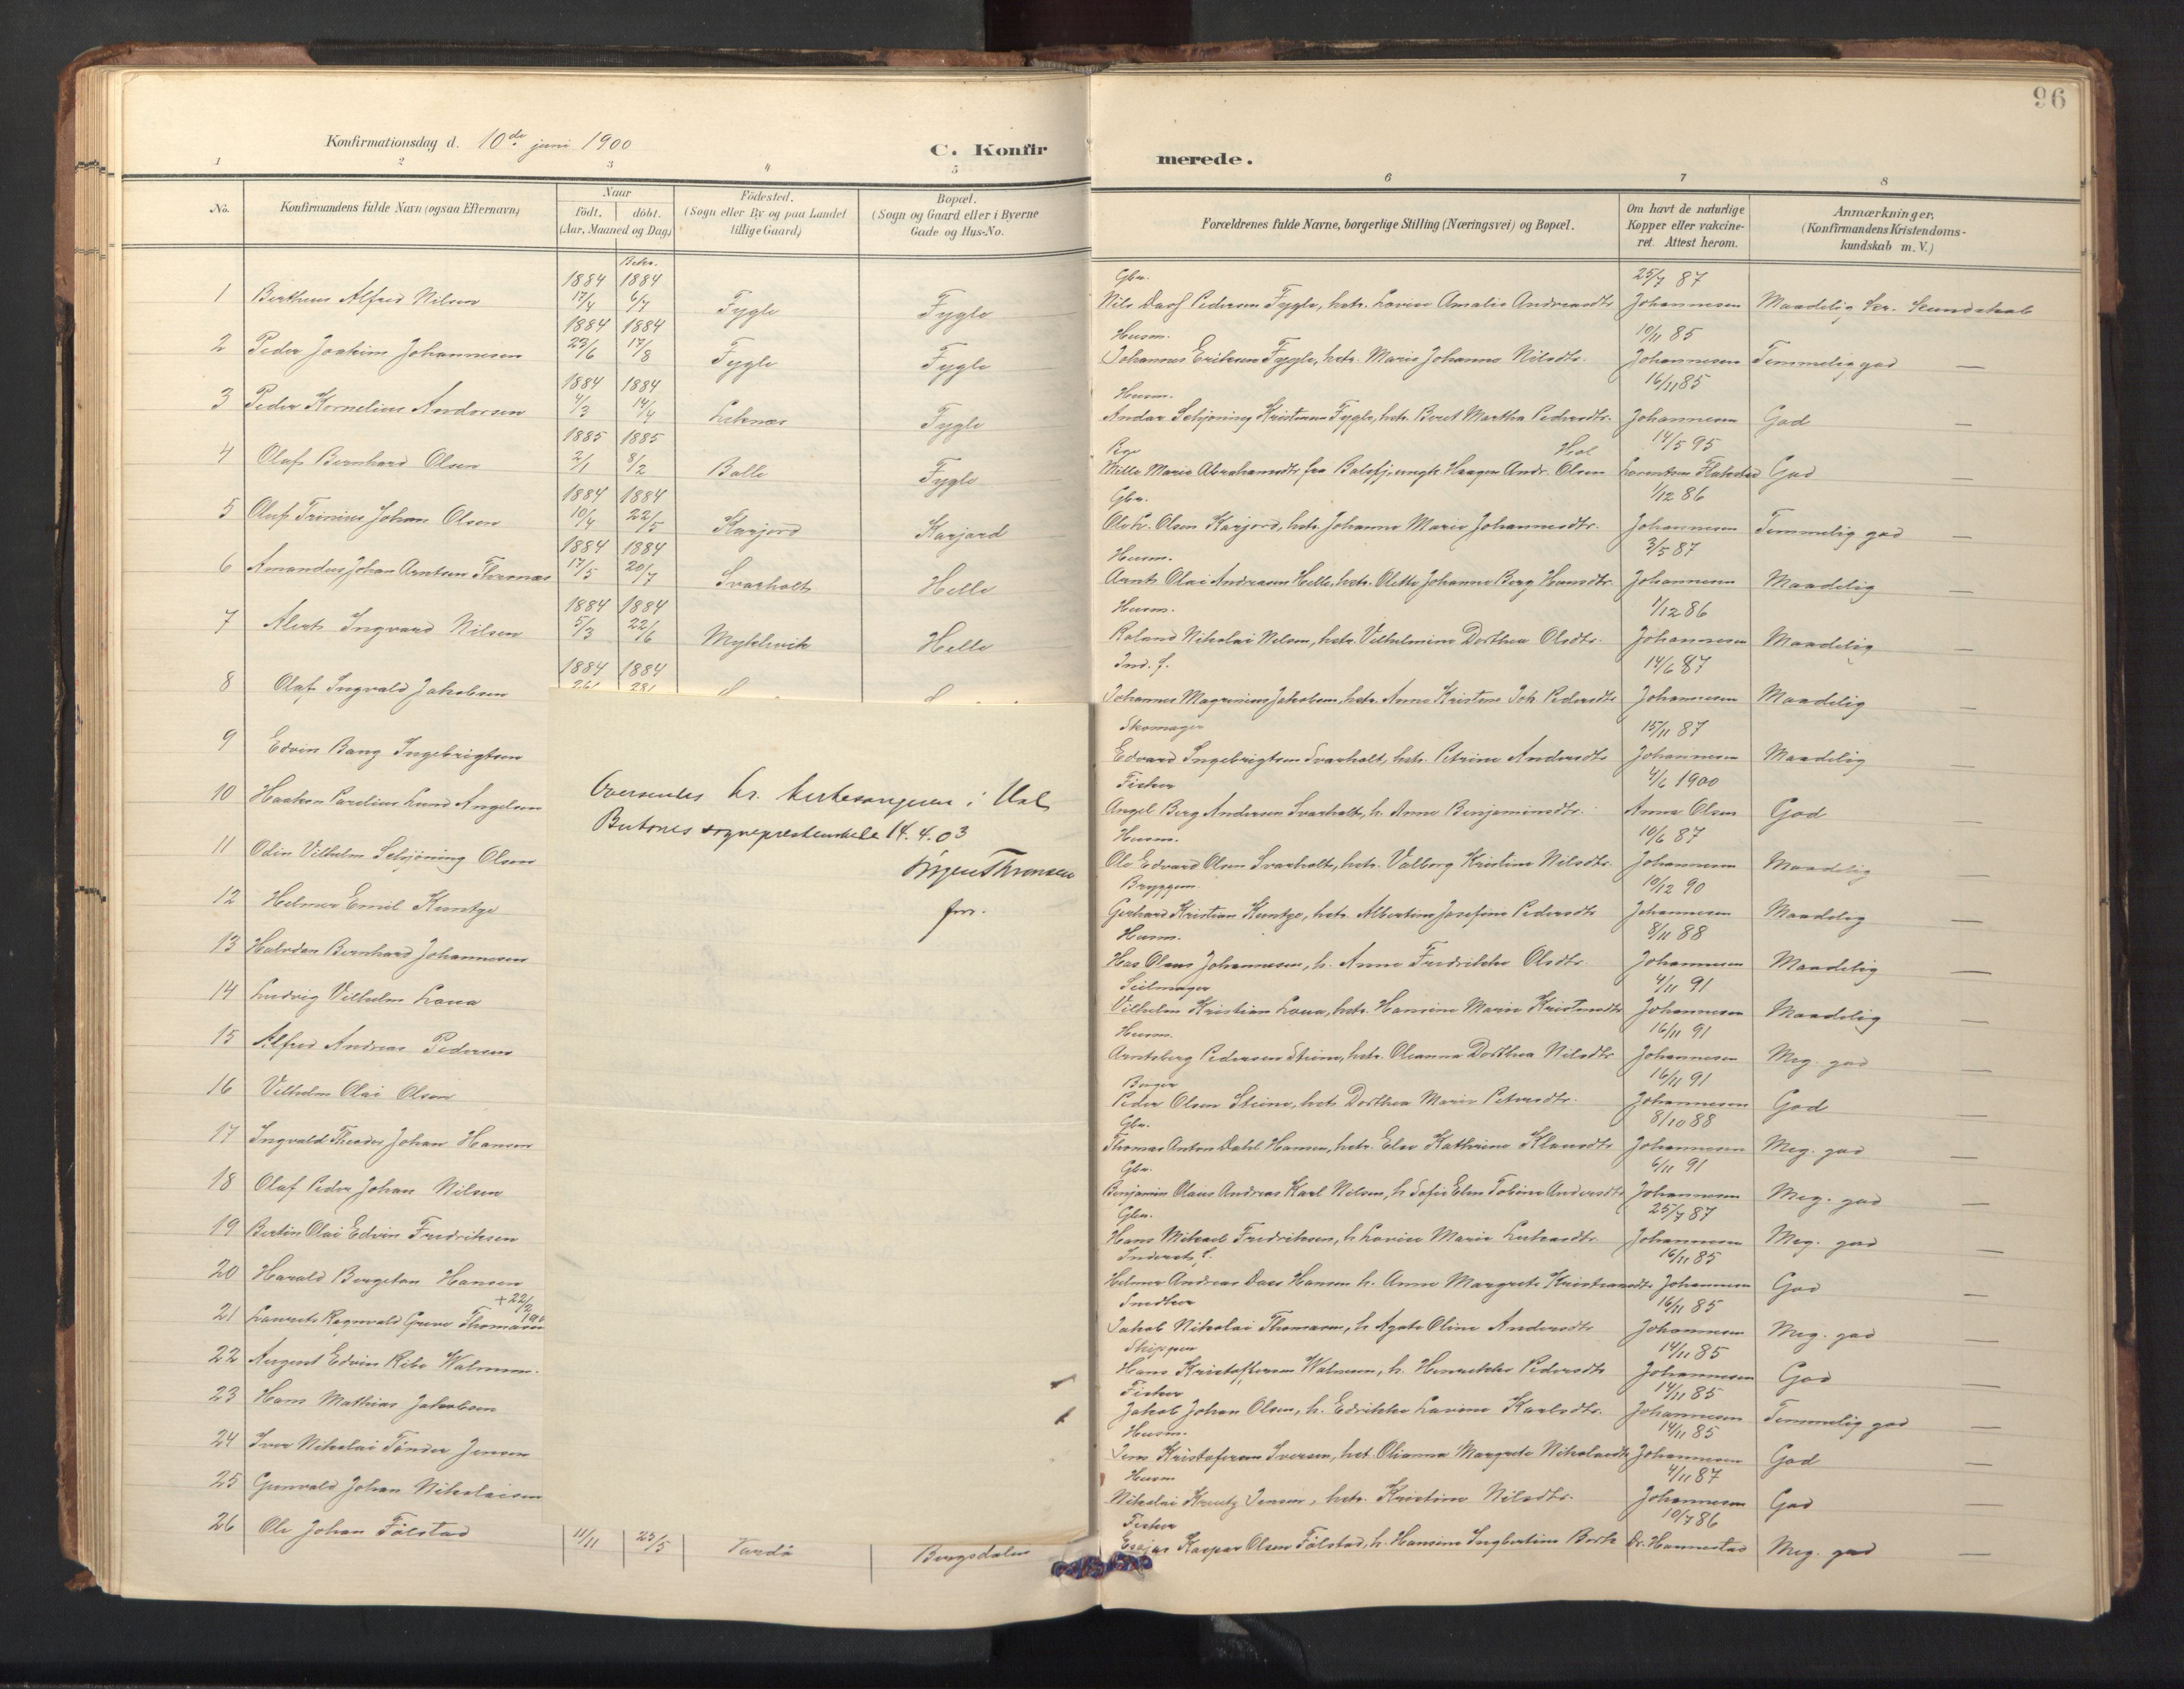 96
Konfirmationsdag d. 10de juni 1900
C. Konfirmerede.
1 2 3 4 5 6 7 8
No.
Konfirmandens fulde Navn (ogsaa Efternavn)
Naar
födt. | döbt.
(Aar, Maaned og Dag)
Födested.
(Sogn eller By og paa Landet
tillige Gaard)
Bopæl.
(Sogn og Gaard eller i Byerne
Gade og Hus-No.
Forældrenes fulde Navne, borgerlige Stilling (Næringsvei) og Bopæl.
Om havt de naturlige
Kopper eller vakcine-
ret. Attest herom.
Anmærkninger.
(Konfirmandens Kristendoms-
kundskab m. V.)
1884 1884 Gbr. 25/7 87
1 Bertheus Alfred Nilsen 17/4 6/7 Fygle Fygle Nils Pedersen Fygle, hstr. Lovise Amalie Andreasdtr Johannesen Maadelig Kr. Kundskab
1884 1884 Husm. 10/11 85
2 Peder Joakim Johannesen 23/6 17/8 Fygle Fygle Johannes Eriksen Fygle, hstr. Marie Johanne Nilsdtr. Johannesen Temmelig god —
1884 1884 Husm. 16/11 85
3 Peder Kornelius Andorsen 4/3 14/4 Leknæs Fygle Andor Schjöning Kristiansen Fygle, hstr. Beret Martha Pedersdtr. Johannesen God —
1885 1885 Pige Hol 14/5 95
4 Olaf Bernhard Olsen 2/1 8/2 Balle Fygle Mille Marie Abrahamsdtr fra Balsfj. ungk. Haagen Andr. Olsen Lorentsen Flakstad God
1884 1884 Gbr. 1/12 86
5 Oluf Trinius Johan Olsen 10/4 22/5 Karjord Karjord Ole L. Olsen Karjord, hstr. Johanne Marie Johannesdtr. Johannesen Temmelig god —
1884 1884 Husm. 3/5 87
6 Amandus Johan Arntsen 17/5 20/7 Svarholt Helle Arnt Olai Andreasen Helle, hstr. Olette Johanne Berg Hansdtr. Johannesen Maadelig —
1884 1884 Husm. 1/12 86
7 Alert Ingvard Nilsen 5/3 22/6 Myklevik Helle Roland Nikolai Nilsen, hstr. Vilhelmine Dorthea Olsdtr. Johannesen Maadelig —
1884 1884 Ind. f. 14/6 87
8 Olaf Ingvald Jakobsen Johannes Magrinius Jakobsen, hstr. Anne Kristine Joh. Pedersdtr Johannesen Maadelig —
Skomager 15/11 87
9 Edvin Bang Ingebrigtsen Edvard Ingebrigtsen Svarholt, hstr. Petrine Andersdtr Johannesen Maadelig —
Fisker 4/6 1900
10 Haakon Parelius Lund Angelsen Angel Berg Andersen Svarholt, h. Anne Benjaminsdtr. Anna Olsen God —
Husm. 10/6 87
11 Odin Vilhelm Schjöning Olsen Ole Edvard Olsen Svarholt, hstr. Valborg Kristine Nilsdtr. Johannesen Maadelig —
Bryggem. 10/12 90
12 Helmer Emil Kuntze Gerhard Kristian Kuntze, hstr. Albertine Josefine Pedersdtr Johannesen Maadelig —
Husm. 8/11 88
13 Halvdan Bernhard Johannesen Olaus Johannesen, h. Anne Fredrikke Olsdtr. Johannesen Maadelig —
Seilmager 4/11 91
14 Ludvig Vilhelm Loua Vilhelm Kristian Loua, hstr. Hansine Marie Johannesen Maadelig —
Husm. 16/11 91
15 Alfred Andreas Pedersen Arntsberg Pedersen Steine, hstr. Oleanna Dorthea Nilsdtr Johannesen Meg. god —
16/11 91
16 Vilhelm Olai Olsen Peder Olsen Steine, hstr. Dorthea Marie Petersdtr. Johannesen God —
Gbr. 8/10 88
17 Ingvald Theodor Johan Hansen Thomas Anton Dahl Hansen, hstr. Else Kathrine Klausdtr Johannesen Meg. god —
Gbr. 6/11 91
18 Olaf Peder Johan Nilsen Benjamin Olaus Andreas Karl Nilsen, h. Sofie Elen Tobine Andersdtr Johannesen Meg. god —
Gbr. 25/7 87
19 Bertin Olai Edvin Fredriksen Hans Mikael Fredriksen, h. Lovise Marie Johannesen Meg. god —
Inderst, f. 16/11 85
20 Harald Bergeton Hansen Helmer Andreas Dass Hansen h. Anne Margrete Kristiansdtr Johannesen God —
+ 22/2 16/11 85
21 Laurits Regnvald Greve Thomasen Jakob Nikolai Thomasen, h. Agate Oline Andersdtr Johannesen Meg. god —
Skipper 14/11 85
22 August Edvin Ribe Walnum. Hans Kristoffersen Walnum, h. Henrikke Pedersdtr Johannesen God —
Fisker 14/11 85
23 Hans Mathias Jakobsen Jakob Johan Olsen, h. Edrikke Lavine Karlsdtr. Johannesen Temmelig god —
Husm. 14/11 85
24 Iver Nikolai Tönder Jensen Jens Kristofersen Iversen, hst. Olianna Margrete Nikolaisdtr Johannesen God —
Husm 4/11 87
25 Gunvald Johan Nikolaisen Nikolai Kreutz Jensen, hstr. Kristine Nilsdtr. Johannesen God —
Fisker 10/7 86
26 Ole Johan Fölstad 11/11 23/5 Vardö Bergsdalen Esajas Kaspar Olsen Fölstad, h. Hansine Ingbertine Berth Dr. Hannestad Meg. god —
Oversendes hr. kirkesangeren i Hol
Buksnes sogneprestembede 14.4.03
Jörgen Thronsen